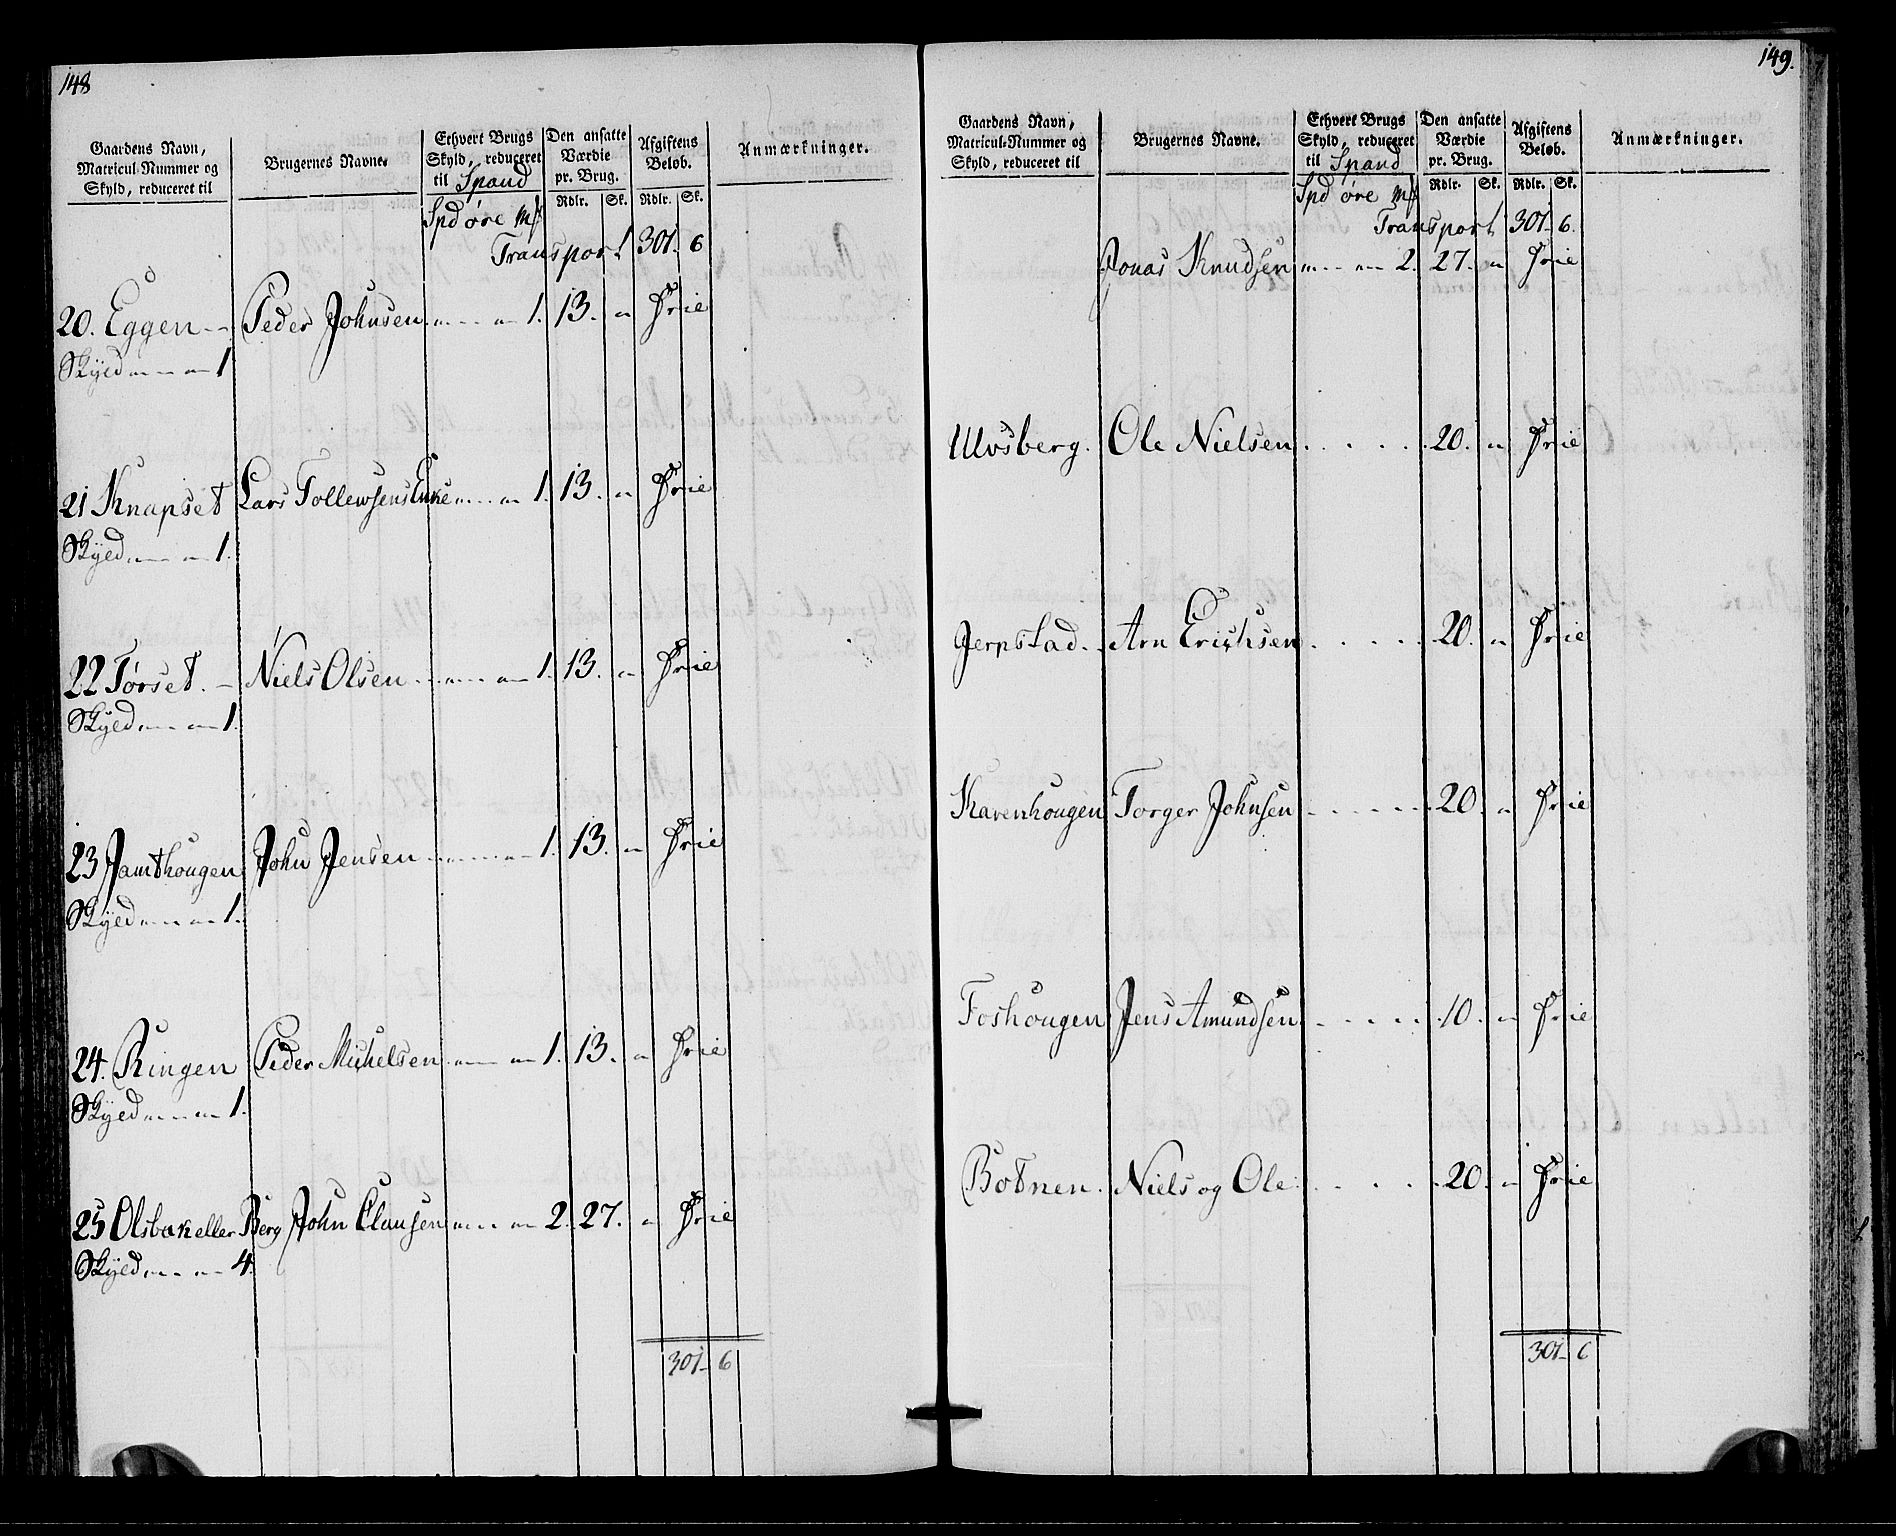 148
Gaardens Navn, Matricul-Nummer og Skyld, reduceret til
Brugernes Navne.
Ethvert Brugs Skyld, reduceret til Spand
Den ansatte Værdie pr. Brug.
Afgiftens Beløb.
Anmærkninger.
Rdlr. Sk. Rdlr. Sk.
Spd øre
Transport 301 - 6
20. Eggen - - Peder Johnsen 1. 13. - Frie
Skyld 1
21 Knapset Lars Tollewsens Enke 1. 13. - Frie
Skyld 1.
22 Tørset. - Niels Olsen 1. 13. - Frie
Skyld 1.
23 Jamthougen John Jensen 1. 13. - Frie
Skyld 1.
24. Ringen Peder Michelsen 1. 13. - Frie
Skyld 1.
25 Olsbak eller Berg John Clausen 2. 27. - Frie
Skyld 4.
301 - 6
149.
Gaardens Navn, Matricul-Nummer og Skyld, reduceret til
Brugernes Navne.
Ethvert Brugs Skyld, reduceret til Spand
Den ansatte Værdie pr. Brug.
Afgiftens Beløb.
Anmærkninger.
Rdlr. Sk. Rdlr. Sk.
Spd øre
Transport 301 - 6.
Jonas Knudsen 2. 27. - Frie
Ulvsberg. Ole Nielsen 20. - Frie
Jerpstad. Arn Erichsen 20. - Frie
Ravenhougen Torger Johnsen 20. - Frie
Foshougen Jens Amundsen 10. - Frie
Botnen. Niels og Ole 20. - Frie
301 - 6